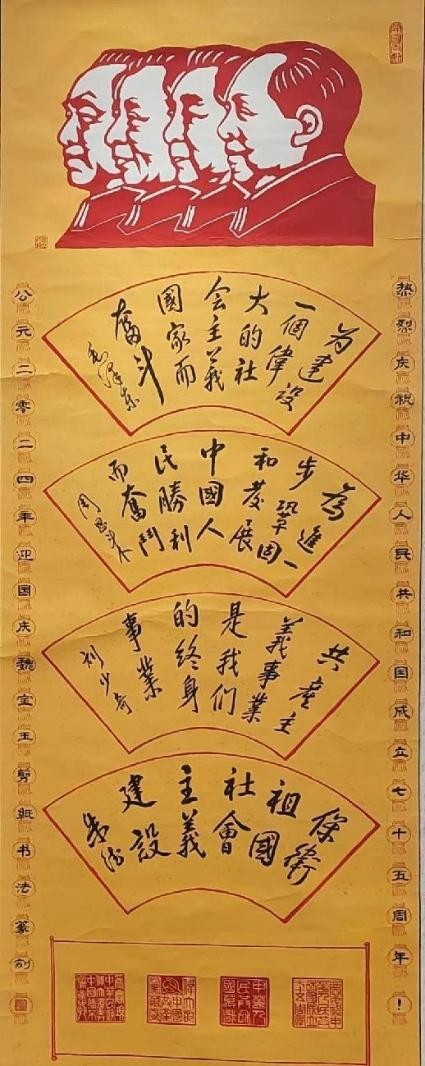 热烈庆祝中华人民共和国成立七十五周年！
为建设
一個偉
大的社
会主義
國家而
奮斗
毛泽东
為進一
步鞏固
和發展
中國人
民勝利
而奮鬥
周恩来
共產主
義事業
是我们
的终身
事業
刘少奇
保衛
祖國
社會
主義
建設
朱德
公元二零二四年迎国庆魏宝玉剪紙书法篆刻